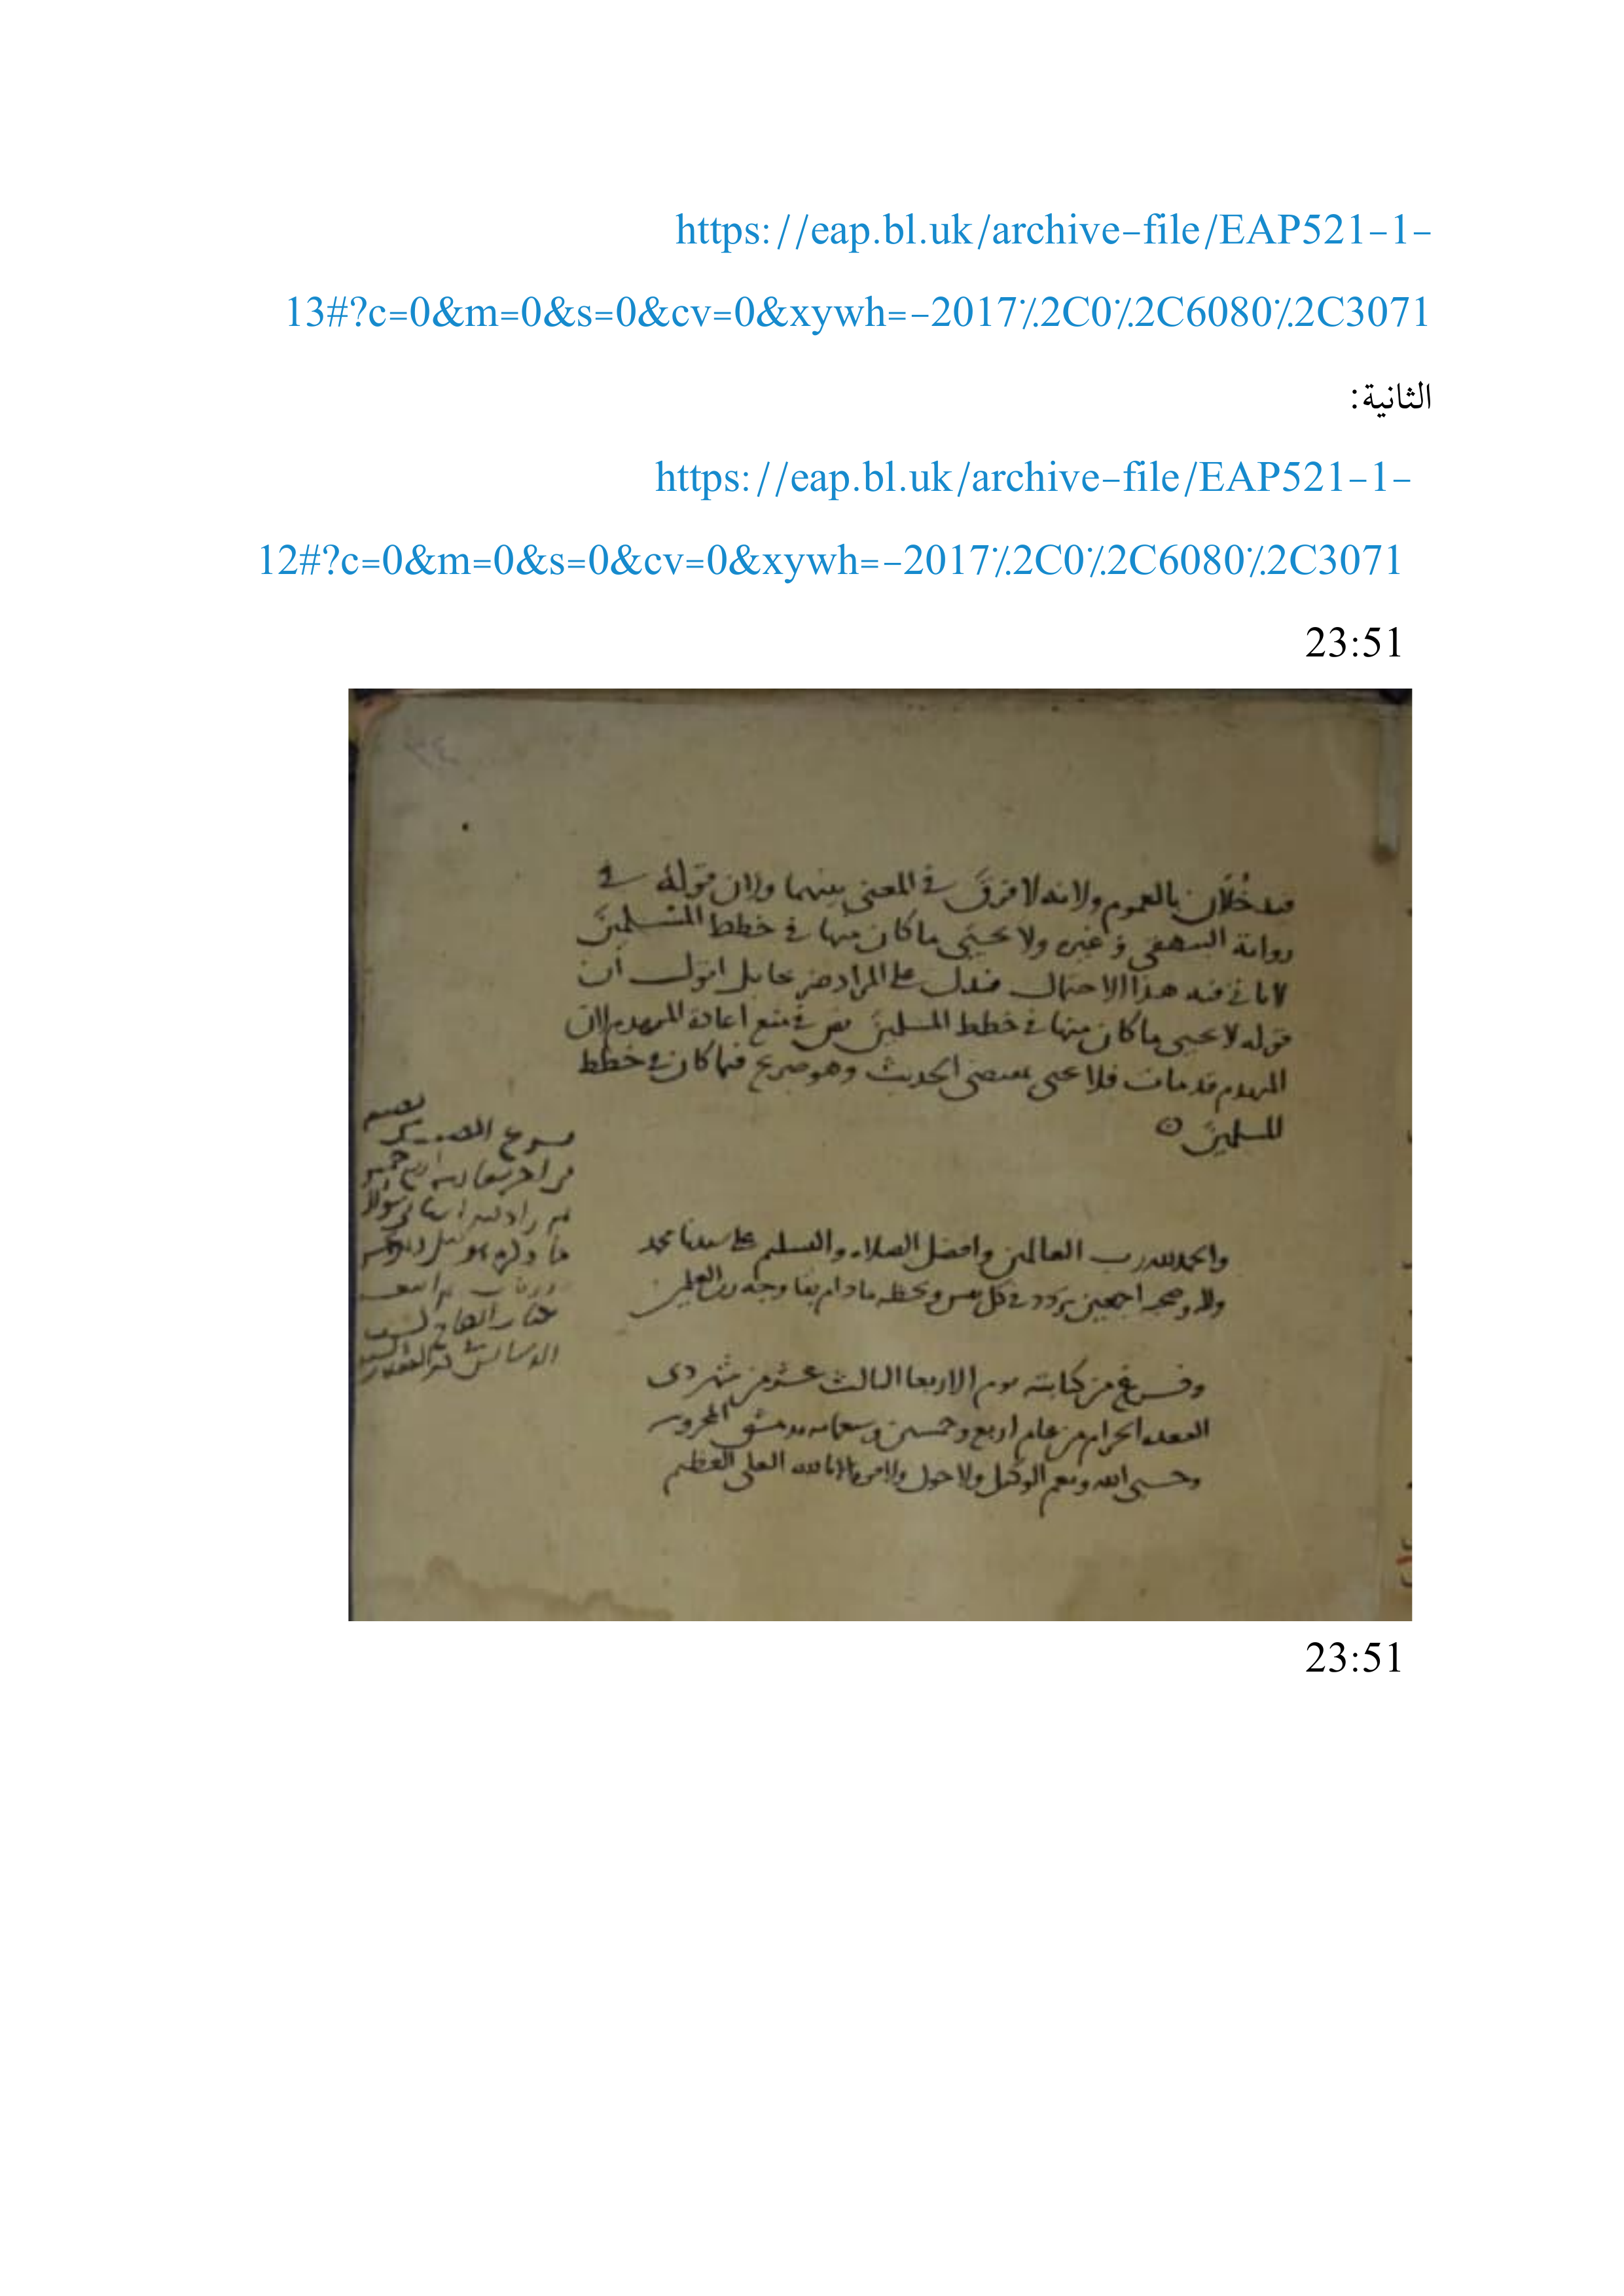 https://eap.bl.uk/archive-file/EAP521-1-
13#?c=0&m=0&s=0&cv=0&xywh=-2017٪2C0٪2C6080٪2C3071
الثانية:
https://eap.bl.uk/archive-file/EAP521-1-
12#?c=0&m=0&s=0&cv=0&xywh=-2017٪2C0٪2C6080٪2C3071
23:51
فيدخلان بالعموم ولانه لا فرق في المعنى بينهما ولان قوله في
رواية البيهقي وغيره ولا يحيى ما كان منها في خطط المسلمين
لا ياتي فيه هذا الاحتمال فيدل على المراد اقول ان
قوله لا يحيى ما كان منها في خطط المسلمين نص في منع اعادة المنهدم لان
المنهدم قد مات فلا يحيى بمقتضى الحديث وهو صريح فيما كان في خطط
المسلمين
والحمد لله رب العالمين وافضل الصلاة والتسليم على سيدنا محمد
واله وصحبه اجمعين في كل نفس ولحظه ما دام بقا وجه رب العلمين
وفرغ من كتابته يوم الاربعا الثالث عشر من شهر ذي
القعده الحرام من عام اربع وخمسين وسبعمايه بدمشق المحروسه
وحسبي الله ونعم الوكيل ولا حول ولا قوة الا بالله العلي العظيم
23:51